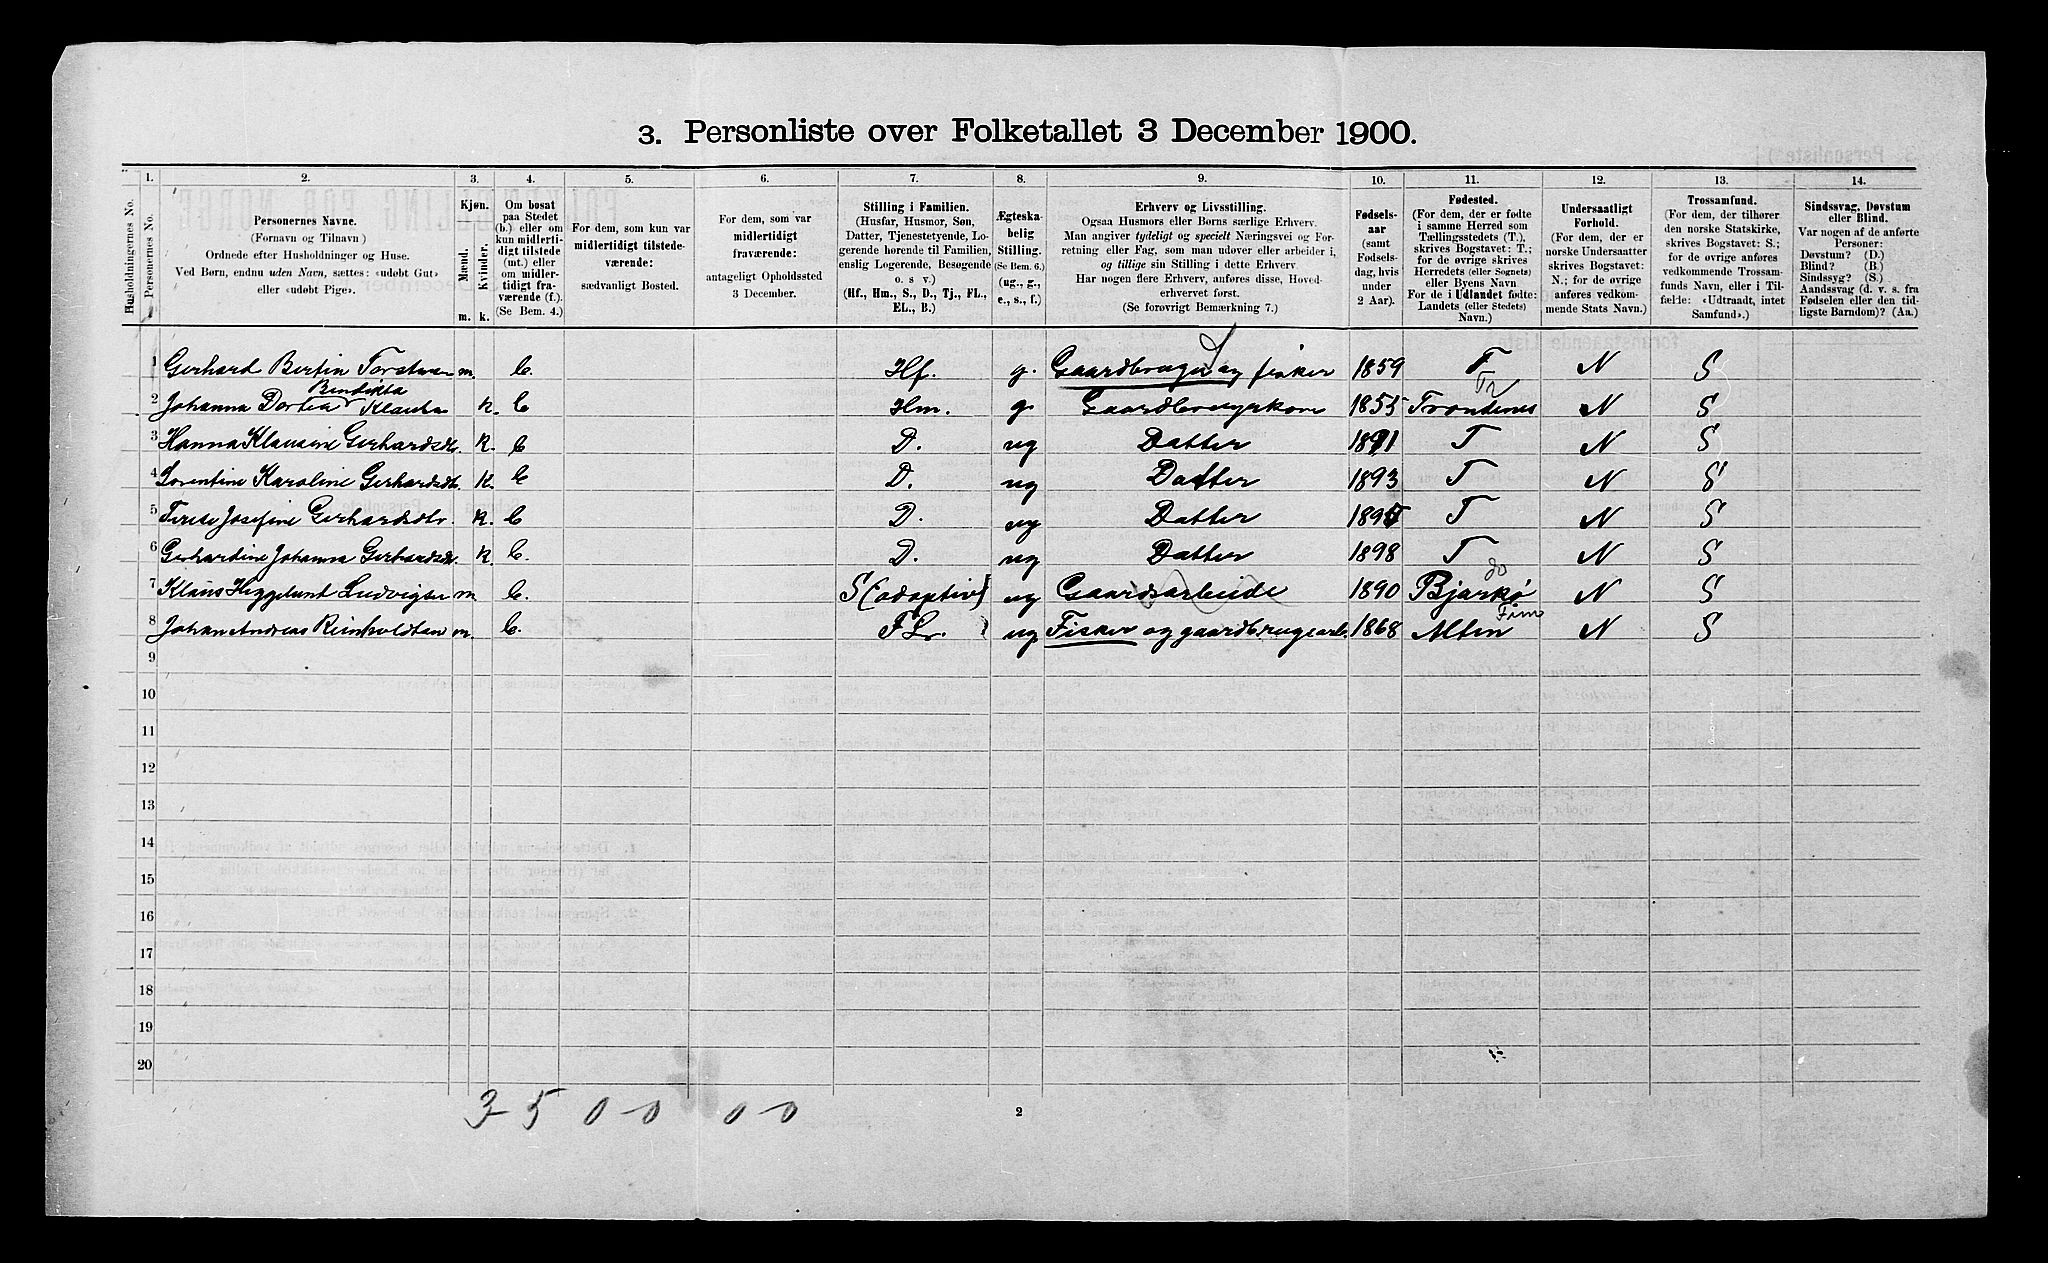 3. Personliste over Folketallet 3 December 1900.
1. 2. 3. 4. 5. 6. 7. 8. 9. 10. 11. 12. 13. 14.
Husholdningernes No.
Personernes No.
Personernes Navne.
(Fornavn og Tilnavn)
Ordnede efter Husholdninger og Huse.
Ved Børn, endnu uden Navn, sættes: «udøbt Gut»
eller «udøbt Pige».
Kjøn.
Mænd.
Kvinder.
m. k.
Om bosat
paa Stedet
(b.) eller om
kun midlerti-
digt tilstede
(mt.) eller
om midler-
tidigt fra-
værende (f.).
(Se Bem. 4.)
For dem, som kun var
midlertidigt tilstede-
værende:
sædvanligt Bosted.
For dem, som var
midlertidigt
fraværende:
antageligt Opholdssted
3 December.
Stilling i Familien.
(Husfar, Husmor, Søn,
Datter, Tjenestetyende, Lo-
gerende hørende til Familien,
enslig Logerende, Besøgende
o. s. v.)
(Hf., Hm., S., D., Tj., FL.,
EL., B.)
Ægteska-
belig
Stilling.
(Se Bem. 6.)
(ug., g.,
e., s., f.)
Erhverv og Livsstilling.
Ogsaa Husmors eller Børns særlige Erhverv.
Man angiver tydeligt og specielt Næringsvei og For-
retning eller Fag, som man udøver eller arbeider i,
og tillige sin Stilling i dette Erhverv.
Har nogen flere Erhverv, anføres disse, Hoved-
erhvervet først.
(Se forøvrigt Bemærkning 7.)
Fødsels-
aar
(samt
Fødsels-
dag, hvis
under
2 Aar).
Fødested.
(For dem, der er fødte
i samme Herred som
Tællingsstedets (T.),
skrives Bogstavet: T.;
for de øvrige skrives
Herredets (eller Sognets)
eller Byens Navn
For de i Udlandet fødte:
Landets (eller Stedets)
Navn.)
Undersaatligt
Forhold.
(For dem, der er
norske Undersaatter
skrives Bogstavet:
N.; for de øvrige
anføres vedkom-
mende Stats Navn.)
Trossamfund.
(For dem, der tilhører
den norske Statskirke,
skrives Bogstavet: S.;
for de øvrige anføres
vedkommende Trossam-
funds Navn, eller i Til-
fælde: «Udtraadt, intet
Samfund».)
Sindssvag, Døvstum
eller Blind.
Var nogen af de anførte
Personer:
Døvstum? (D.)
Blind? (B.)
Sindssyg? (S.)
Aandssvag (d. v. s. fra
Fødselen eller den tid-
ligste Barndom)? (Aa.)
1 Gerhard Bertin m. b. Hf. g. Gaardbruger og fisker 1859 T N S
Bendikta
Tr
2 Johanna Dortea k. b Hm. g. 1855 Trondenes N S
3 Hanna Klausine Gerhardsdtr. k. b D. ug Datter T N S
4 Lorentine Karoline Gerhardsdtr. k. b D. ug Datter 1893 T N S
5 Josefine Gerhardsdtr. k. b D. ug Datter 1895 T N S
6 Gerhardine Johanna Gerhardsdtr. k. b. D. ug Datter 1898 T N S
do
7 Klaus Heggelund Ludvigsen m b. S (adoptiv) ug Gaardsarbeide 1890 Bjarkø N S
Finm
8 Johan Andreas Reinholdtsen m. b. F L. ug Fisker og gaardbrugsarb. 1868 Alten N S
9
10
11
12
13
14
15
16
17
18
19
20
3 5 0 0 0 0
2